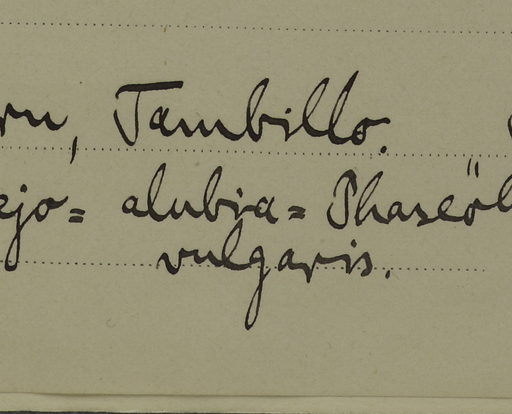 ru, Tambillo.
ejo = alubia = Phaseöl
vulgaris.